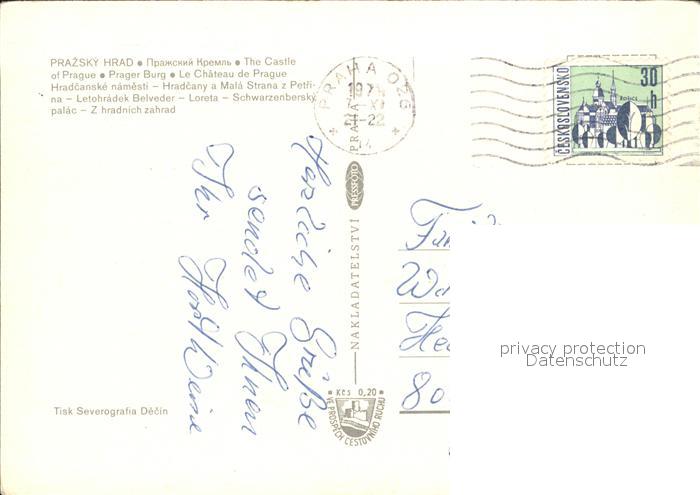 PRAŽSKÝ HRAD ● Пражский Кремль ● The Castle
of Prague ● Prager Burg ● Le Château de Prague
Hradčanské náměstí – Hradčany a Malá Strana z Petří-
na – Letohrádek Belveder – Loreta – Schwarzenberský
palác – Z hradních zahrad
PRAHA 026
PRAHA
ČESKOSLOVENSKO
30
h
Herzliche Grüße
sendet Ihnen
Ihr Horst
NAKLADATELSTVÍ PRESSFOTO
Kčs 0,20
VE PROSPĚCH CESTOVNÍHO RUCHU
Tisk Severografia Děčín
80
privacy protection
Datenschutz